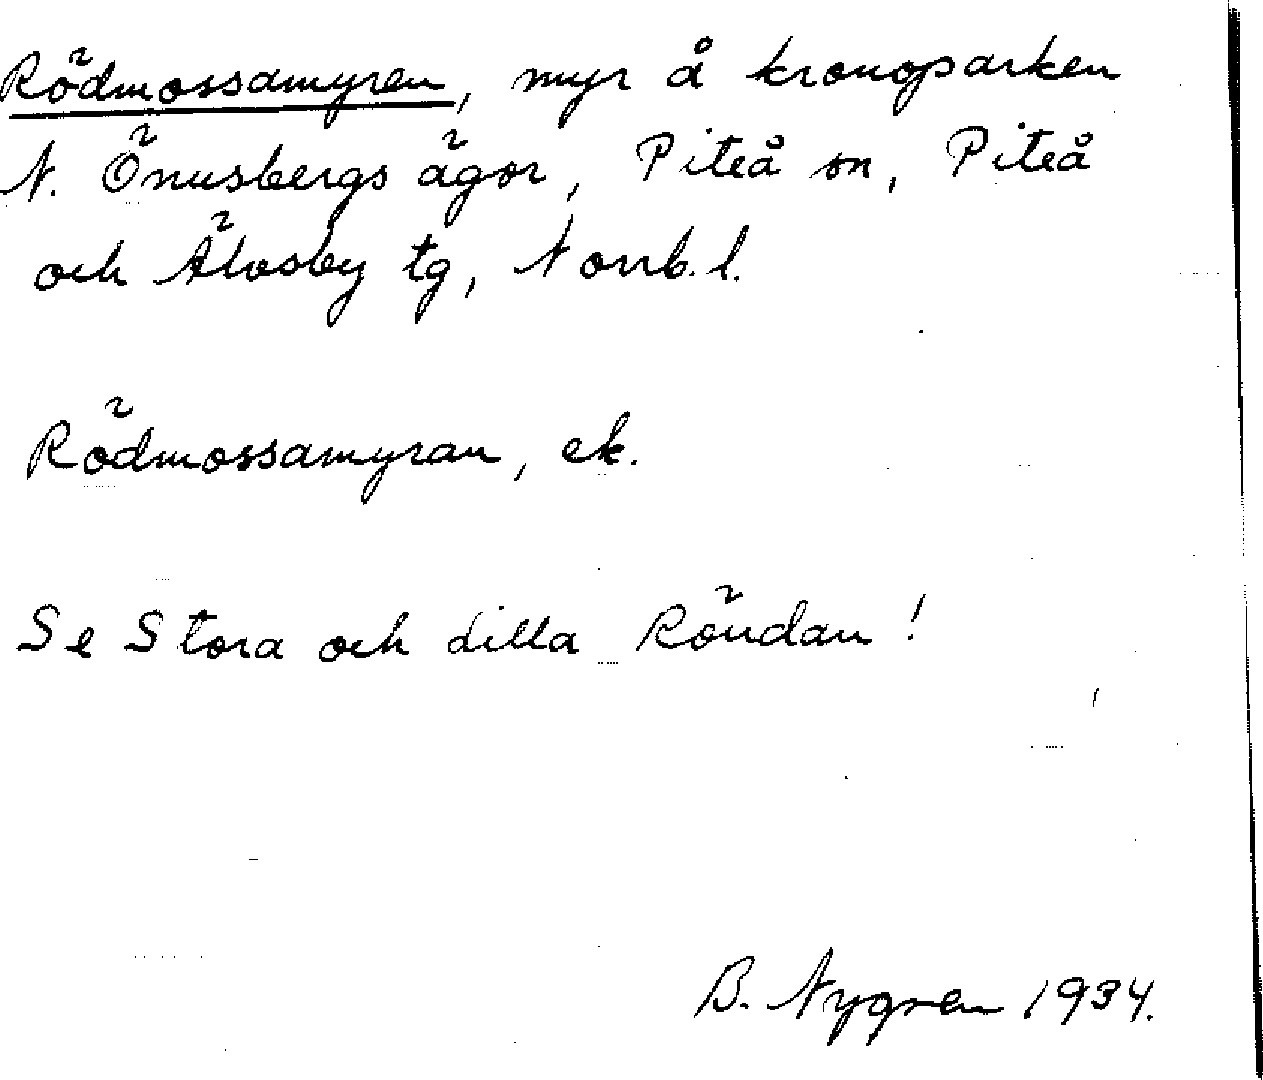 Rödmossamyren, myr å kronoparken
N. Önusbergs ägor, Piteå sn, Piteå
och Älvsby tg, Norrb. l.
Rödmossamyran, ek.
Se Stora och Lilla Röudan!
B. Nygren 1934.